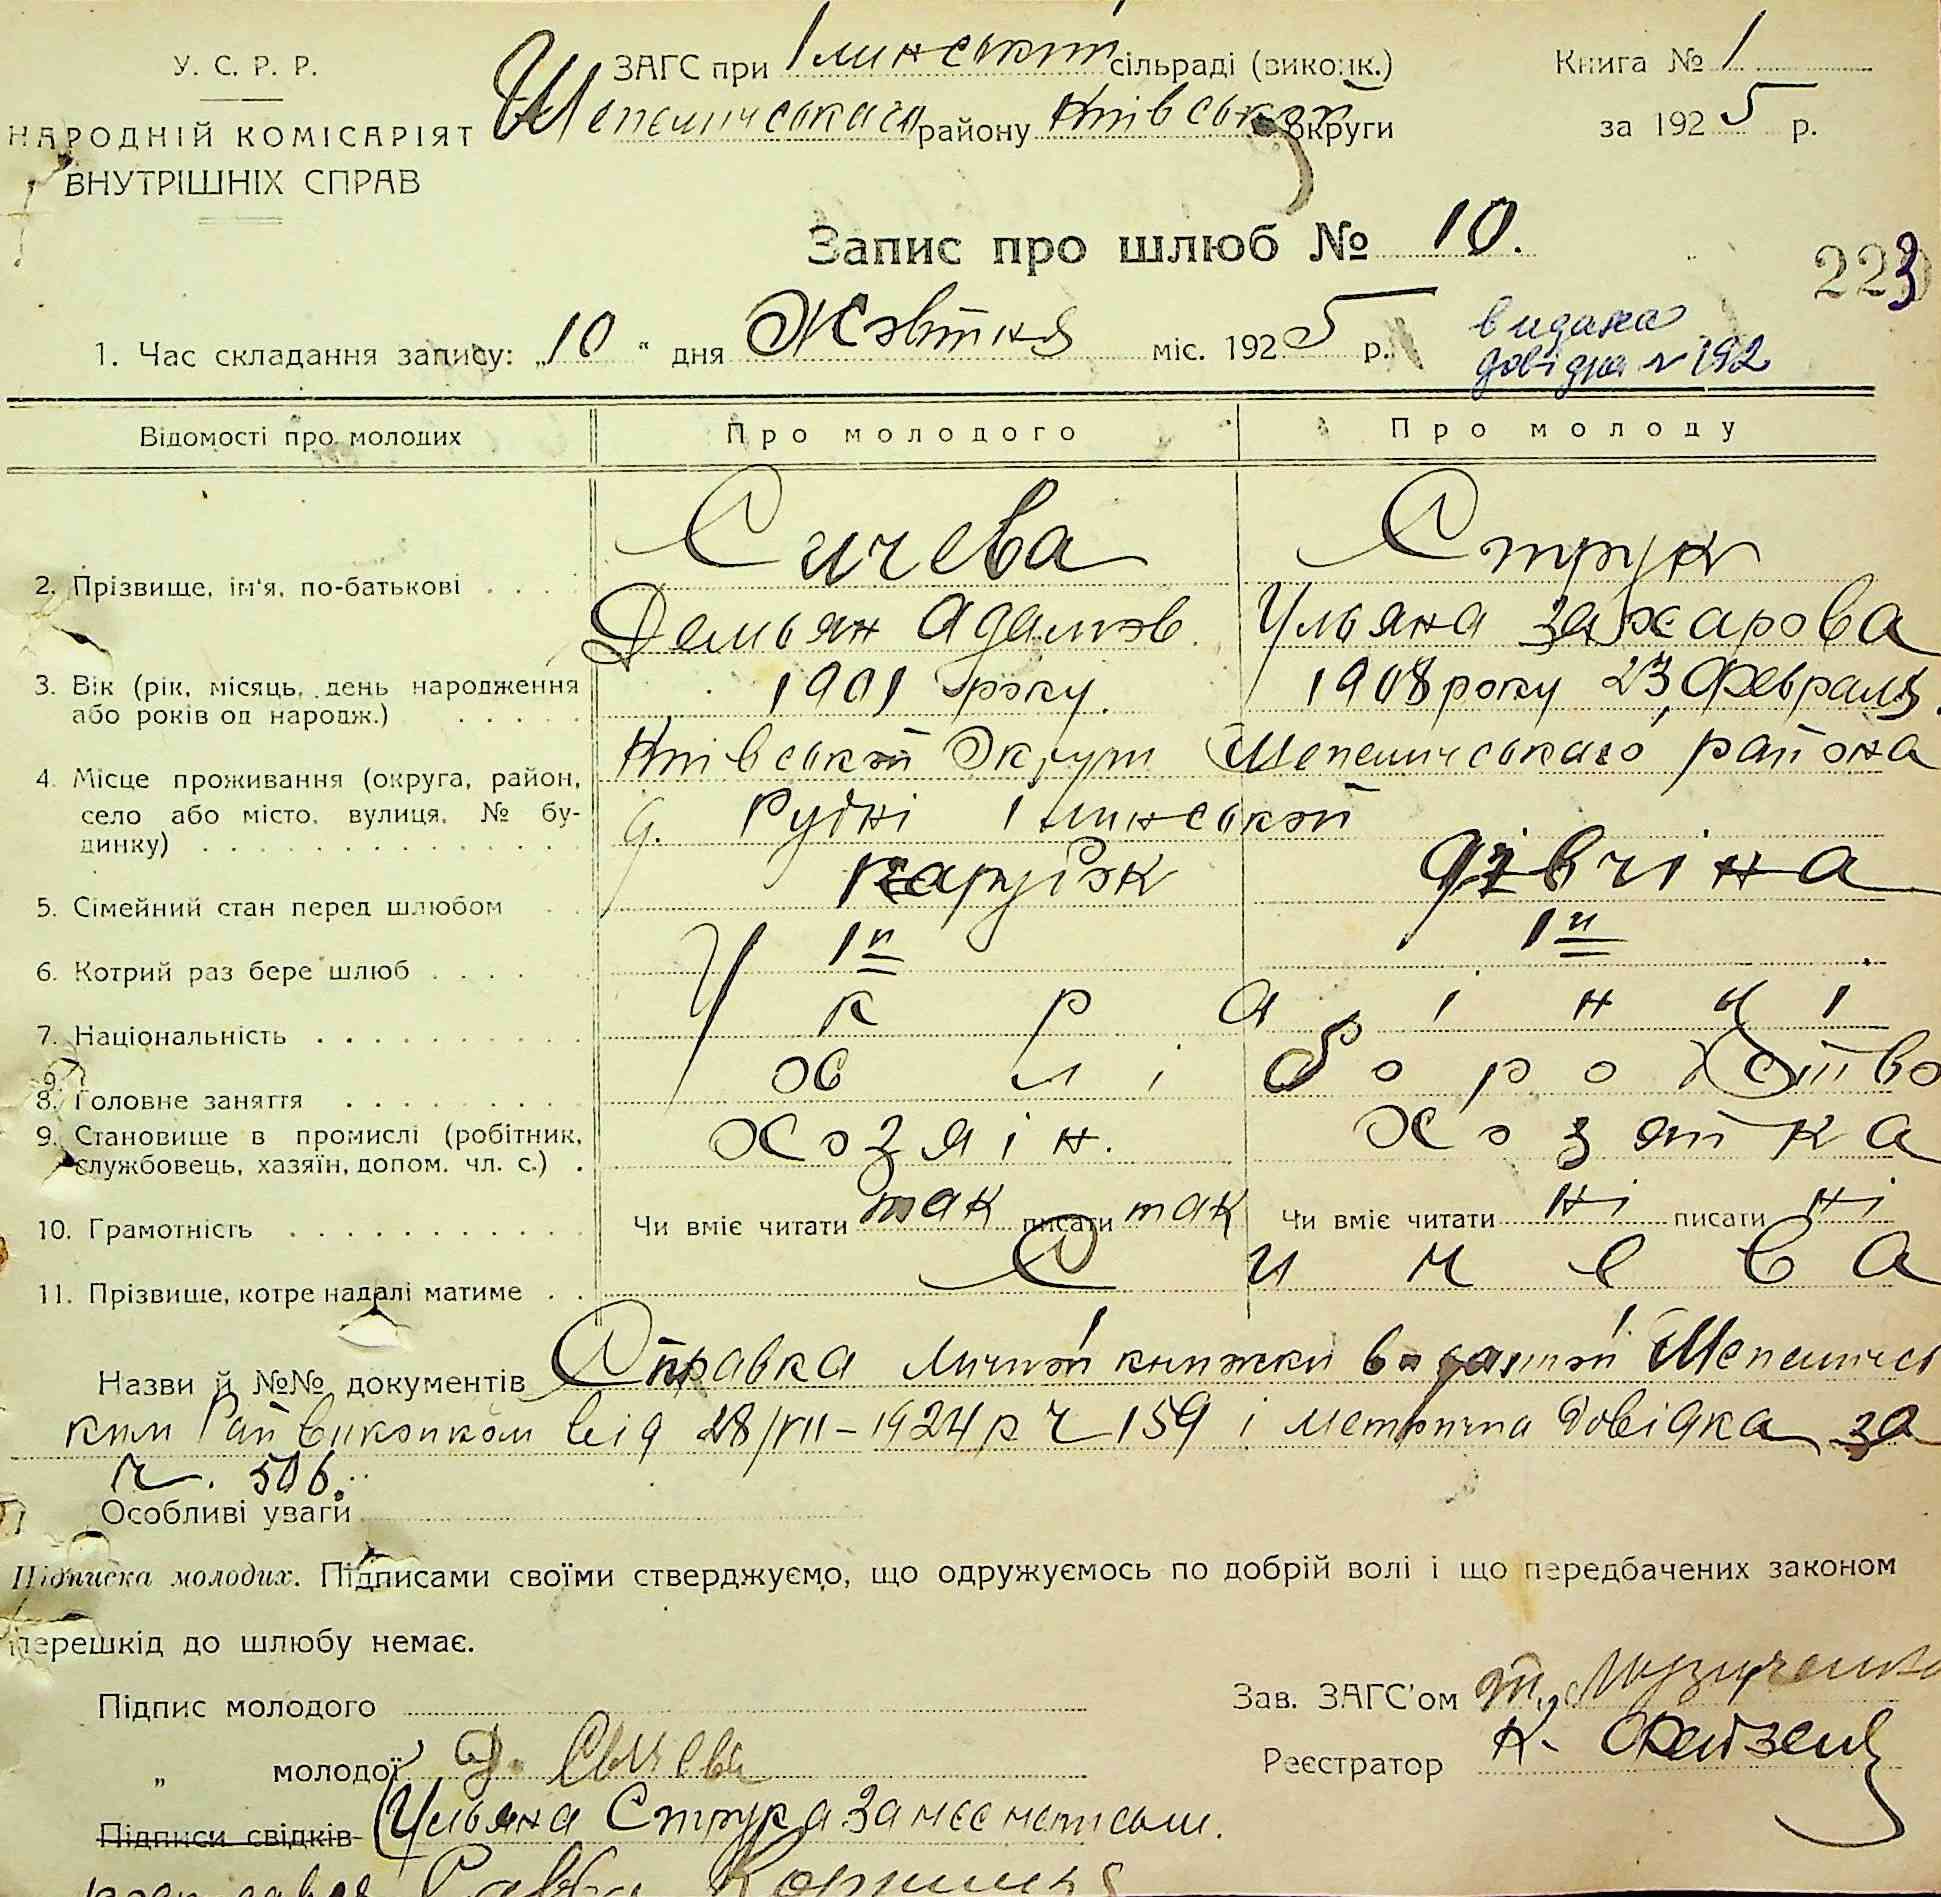 У. С. Р. Р.
НАРОДНІЙ КОМІСАРІЯТ
ВНУТРІШНІХ СПРАВ
ЗАГС при Ілинській сільраді (виконк.)
Шепелицського району Київської округи
Книга № 1
за 1925 р.
Запис про шлюб № 10.
223
1. Час складання запису: „10“ дня Жовтня міс. 1925 р.
видана
довідка № 192
Відомості про молодих Про молодого Про молоду
2. Прізвище, ім'я, по-батькові Сичева Струк
Демьян Адамов. Ульяна Захарова
3. Вік (рік, місяць, день народження або років од народж.) 1901 року. 1908 року 23 Февраля.
4. Місце проживання (округа, район, село або місто, вулиця, № будинку) Київській Округи Шепелицського района
с. Рудні Ілинській
5. Сімейний стан перед шлюбом парубок дівчина
6. Котрий раз бере шлюб 1й 1й
7. Національність Українці
8. Головне заняття хліборобство
9. Становище в промислі (робітник, службовець, хазяїн, допом. чл. с.) Хозяін. Хозяйка
10. Грамотність Чи вміє читати так писати так Чи вміє читати ні писати ні
11. Прізвище, котре надалі матиме Сичева
Назви й №№ документів Справка личной книжки виданой Шепелицсь
ким Райвиконком від 28/VII – 1924 р Ч 159 і метрична довідка за
ч. 506.
Особливі уваги
Підписка молодих. Підписами своїми стверджуємо, що одружуємось по добрій волі і що передбачених законом
перешкід до шлюбу немає.
Підпис молодого
„ молодої Д. Сичева
Підписи свідків Ульяна Струк а за неє неписьм.
Савва
Зав. ЗАГС'ом
Реєстратор К.